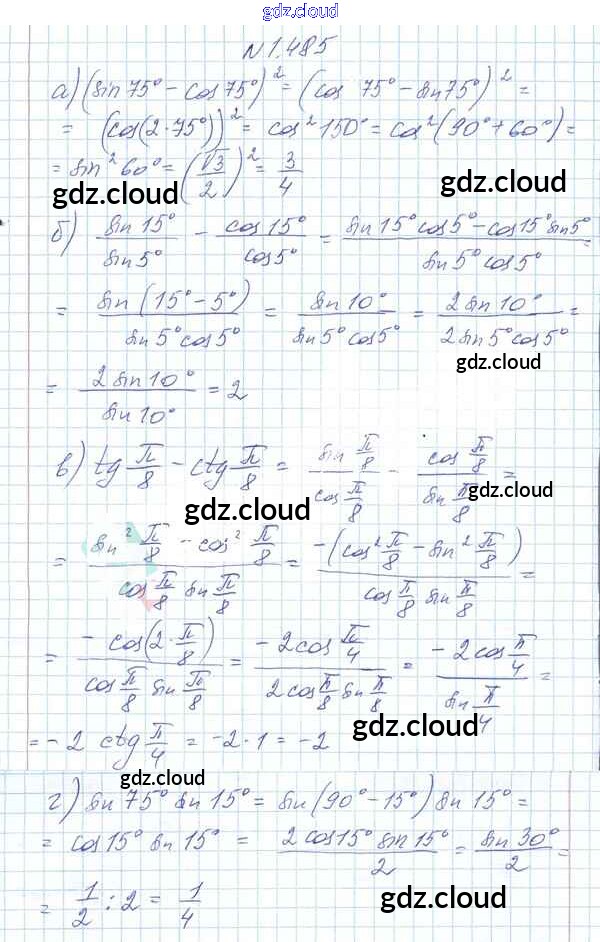 gdz.cloud
N 1.485
а) (sin 75° - cos 75°)² = (cos 75° - sin 75°)² =
= (cos(2·75°))² = cos² 150° = cos²(90° + 60°) =
= sin² 60° = (√3/2)² = 3/4
gdz.cloud gdz.cloud
б) sin 15°/sin 5° - cos 15°/cos 5° = (sin 15° cos 5° - cos 15° sin 5°)/(sin 5° cos 5°) =
= sin(15° - 5°)/(sin 5° cos 5°) = sin 10°/(sin 5° cos 5°) = 2 sin 10°/(2 sin 5° cos 5°) =
gdz.cloud
= 2 sin 10°/sin 10° = 2
в) tg π/8 - ctg π/8 = (sin π/8)/(cos π/8) - (cos π/8)/(sin π/8) =
gdz.cloud gdz.cloud
= (sin² π/8 - cos² π/8)/(cos π/8 sin π/8) = -(cos² π/8 - sin² π/8)/(cos π/8 sin π/8) =
= - cos(2·π/8)/(cos π/8 sin π/8) = -2 cos π/4/(2 cos π/8 sin π/8) = -2 cos π/4/(sin π/4) =
gdz.cloud
= -2 ctg π/4 = -2·1 = -2
gdz.cloud
г) sin 75° sin 15° = sin(90° - 15°) sin 15° =
= cos 15° sin 15° = 2 cos 15° sin 15°/2 = sin 30°/2 =
= 1/2 : 2 = 1/4
gdz.cloud